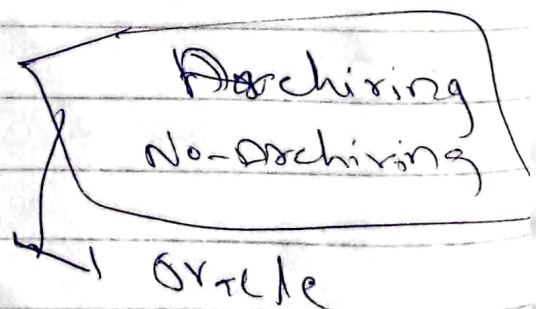 Archiving
No-Archiving
Oracle